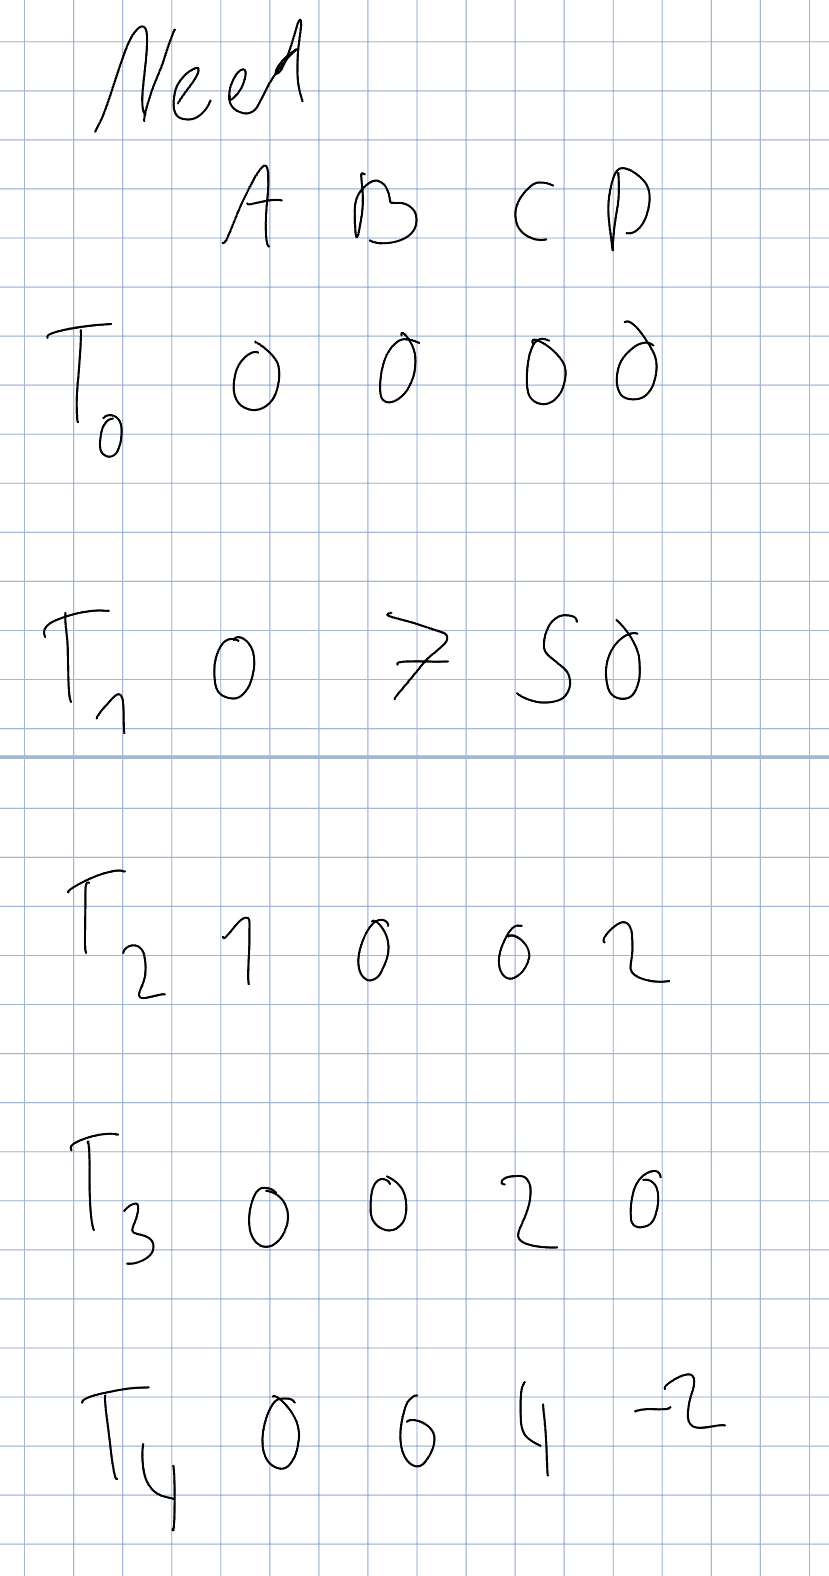 Need
A B C D
T0 0 0 0 0
T1 0 7 5 0
T2 1 0 0 2
T3 0 0 2 0
T4 0 6 4 -2